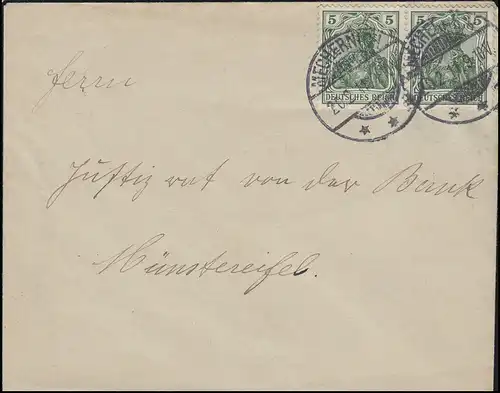 5 5 5 5
MECHERNICH
DEUTSCHES REICH DEUTSCHES REICH
Herrn
Justizrat von der Bank
Münstereifel.